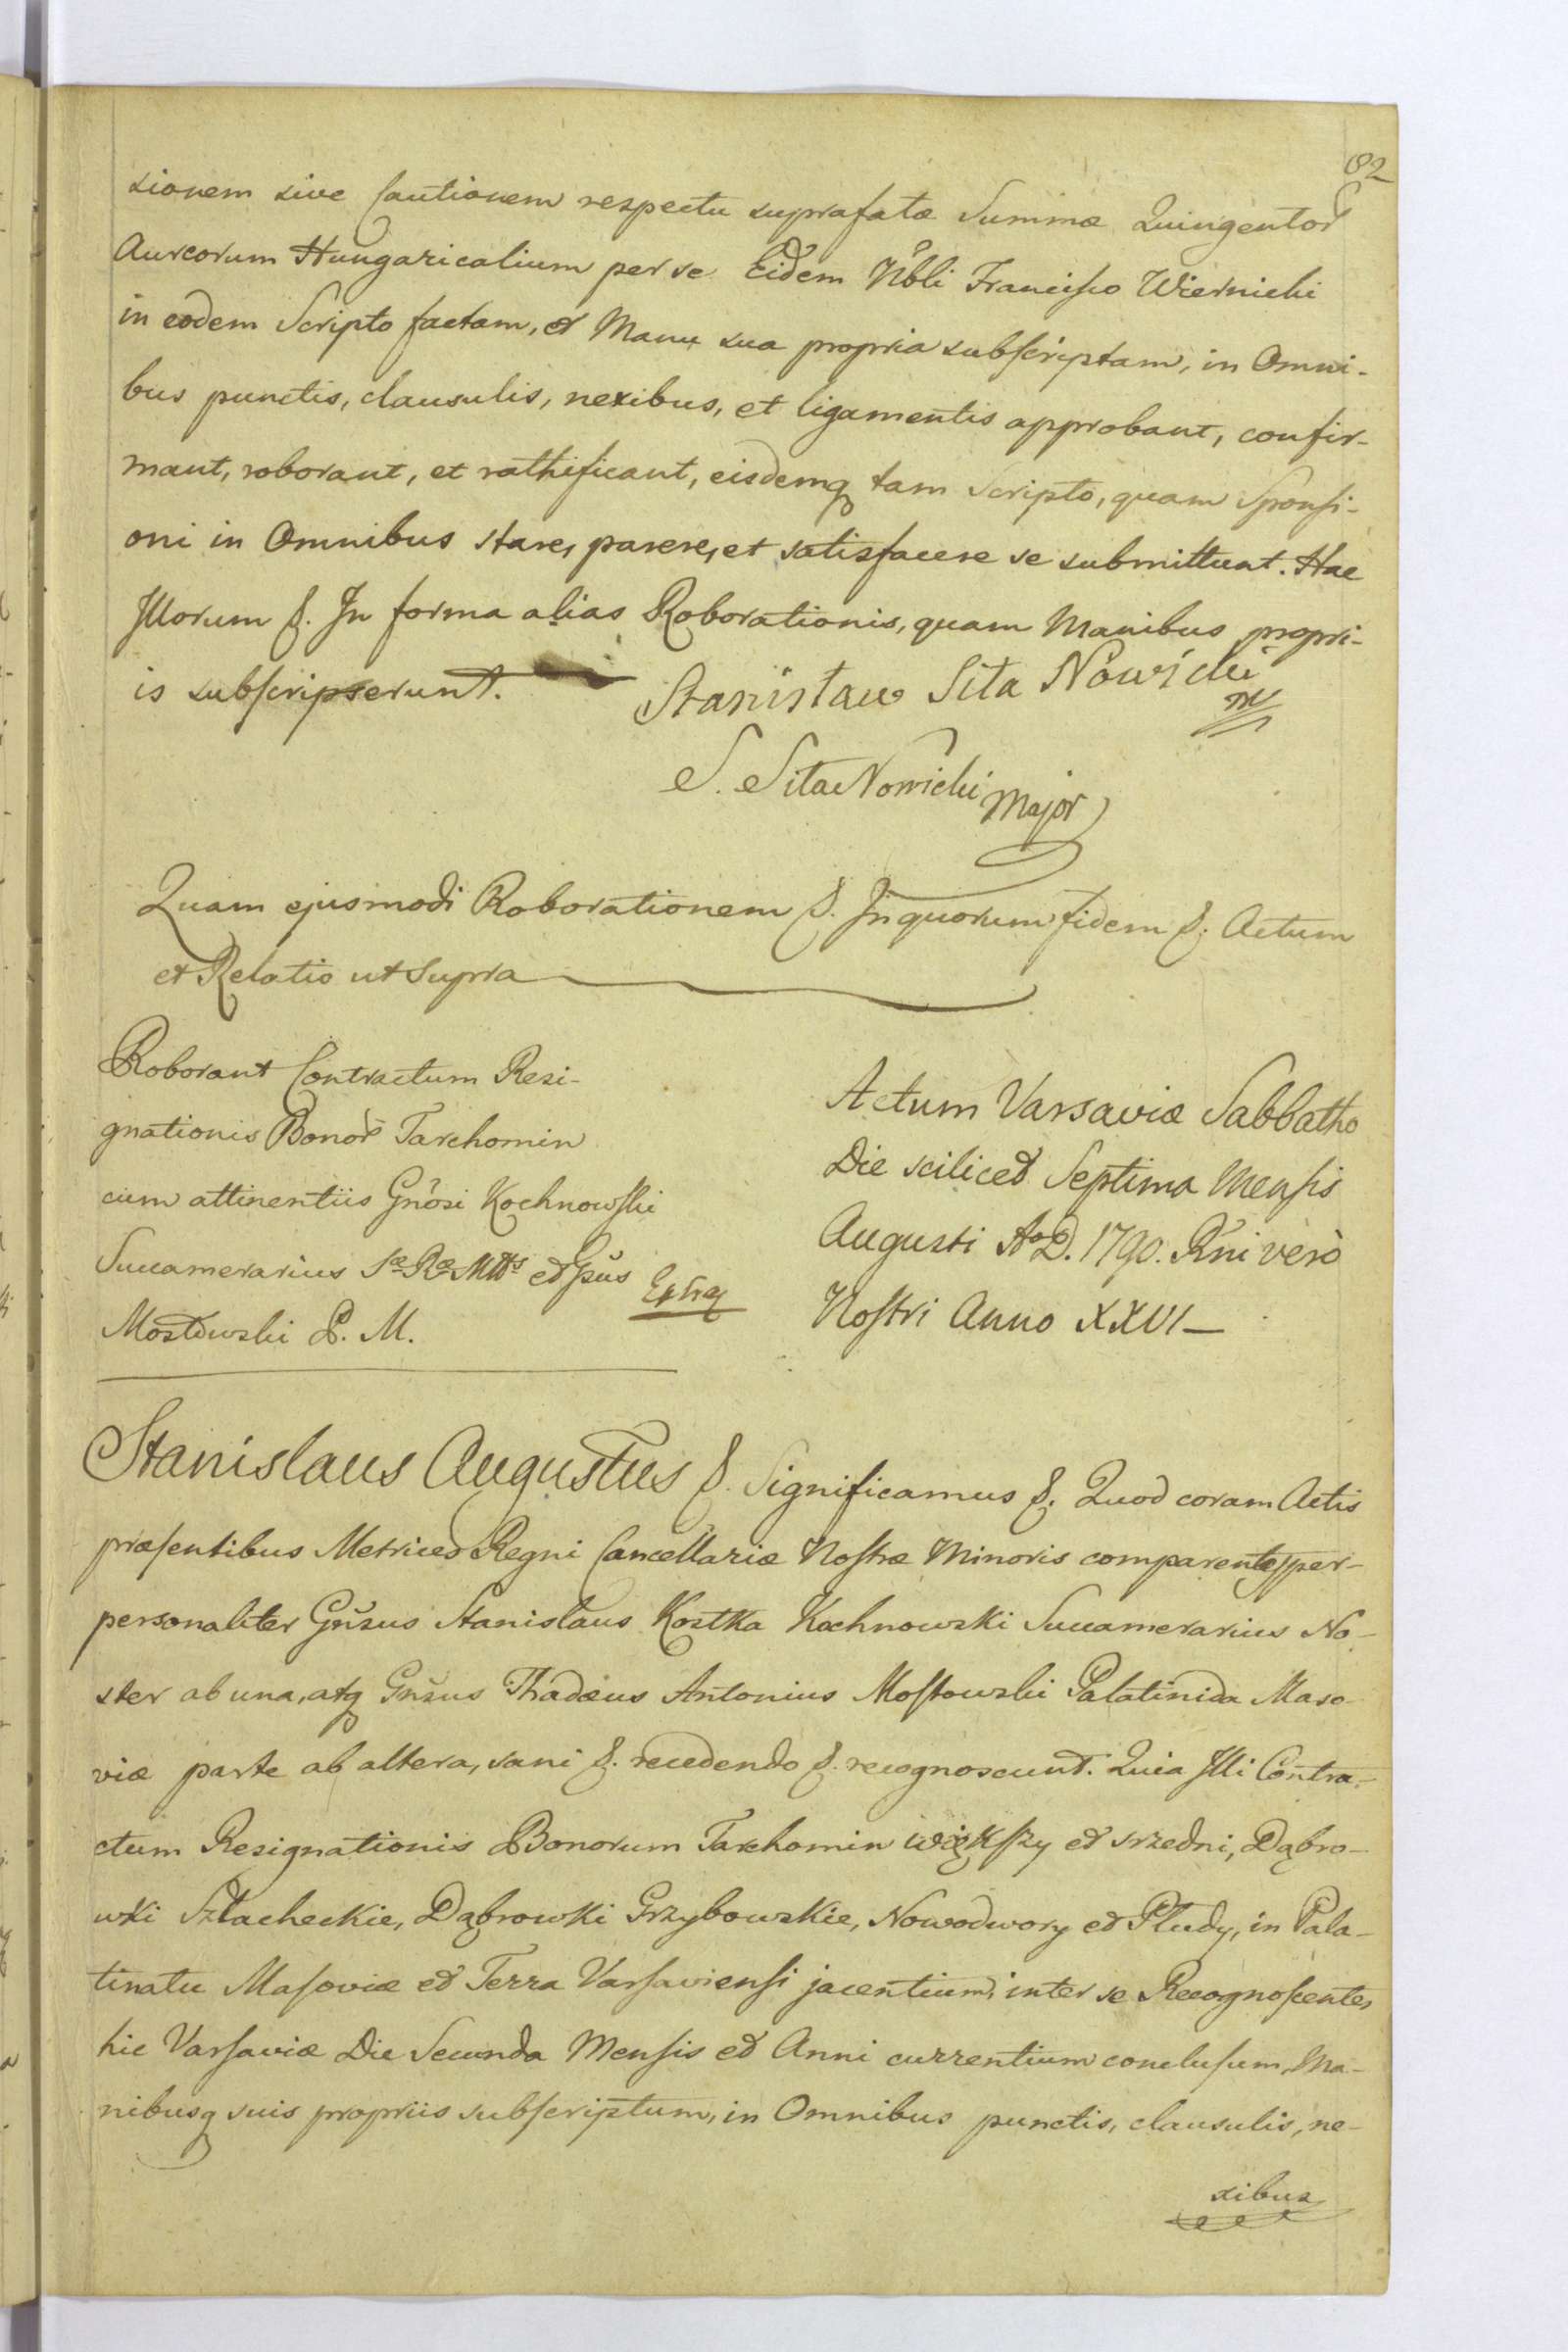 82
sionem sive Cautionem respectu suprafatæ Summæ Quingentor
Aureorum Hungaricalium per se Eidem Nbli Francisco Wiernicki
in eodem Scripto factam, et Manu sua propria subscriptam, in Omni-
bus punctis, clausulis, nexibus, et ligamentis approbant, confir-
mant, roborant, et rathificant, eisdemq tam Scripto, quam Sponsi-
oni in Omnibus stare, parere, et satisfacere se submittunt. Hac
Illorum &. In forma alias Roborationis, quam Manibus propri-
is subscripserunt.
Stanisław Sita Nowicki
S. Sita Nowicki Major
Quam ejusmodi Roborationem &. In quorum fidem &. Actum
et Relatio ut Supra
Roborant Contractum Resi-
gnationis Bonor Tarchomin
cum attinentiis Gnosi Kochnowski
Succamerarius Sæ Ræ Mtts et Gsus
Mostowski P. M.
Extrq
Actum Varsaviæ Sabbatho
Die scilicet Septima Mensis
Augusti Ao D. 1790. Rni vero
Nostri Anno XXVI
Stanislaus Augustus &. Significamus &. Quod coram Actis
præsentibus Metrices Regni Cancellariæ Nostræ Minoris comparentes per-
personaliter Gnsus Stanislaus Kostka Kochnowski Succamerarius No-
ster ab una, atq Gnsus Thadæus Antonius Mostowski Palatinida Maso-
viæ parte ab altera, sani &. recedendo &. recognoscunt. Quia Illi Contra-
ctum Resignationis Bonorum Tarchomin większy et srzedni, Dąbro-
wki Szlacheckie, Dąbrowki Grzybowskie, Nowodwory et Pludy, in Pala-
tinatu Masoviæ et Terra Varsaviensi jacentium, inter se Recognoscentes
hic Varsaviæ Die Secunda Mensis et Anni currentium conclusum, Ma-
nibusq suis propriis subscriptum, in Omnibus punctis, clausulis, ne-
xibus